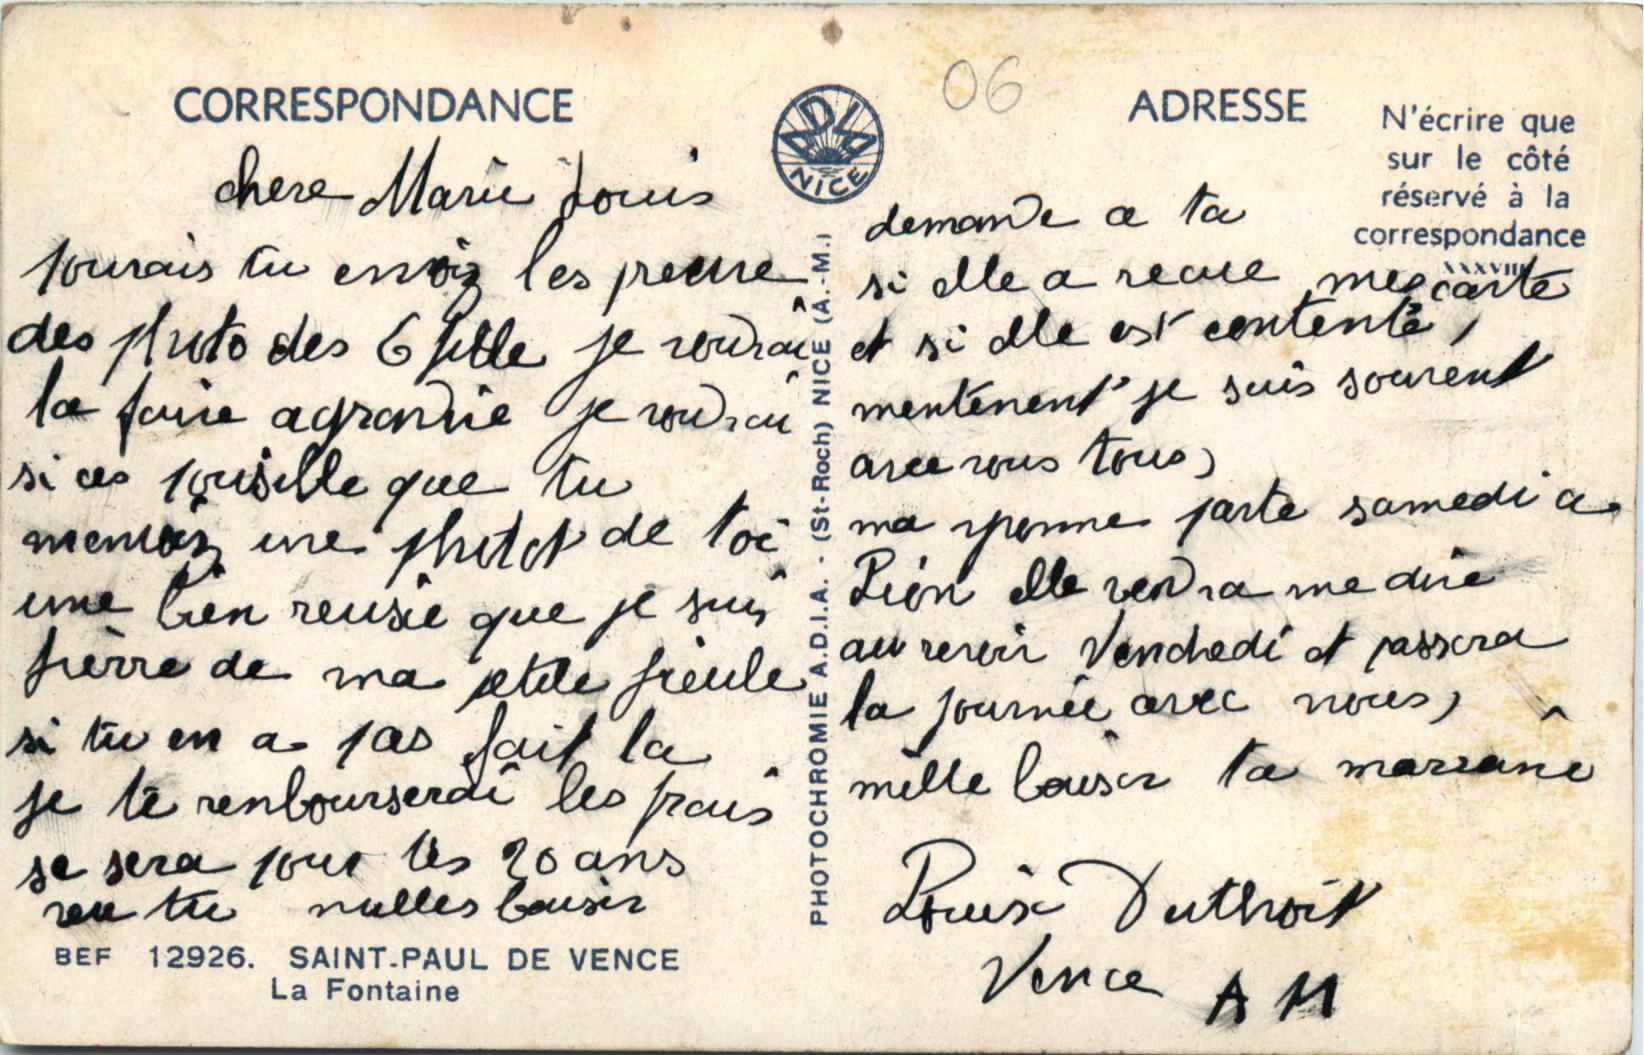 CORRESPONDANCE
chere Marie Louis
pourais tu envoiz les preuve
des photo des 6 fille je voudrai
la faire agrandie je voudrai
si ces possille que tu
menvoiz une photot de toi
une bien reusie que je suis
fierre de ma petite fieule
si tu en a pas fait la
je te renbourserai les frais
se sera pour tes 20 ans
veu tu milles baisir
BEF 12926. SAINT-PAUL DE VENCE
La Fontaine
ADIA
NICE
PHOTOCHROMIE A.D.I.A. - (St-Roch) NICE (A.-M.)
06
ADRESSE
N'écrire que
sur le côté
réservé à la
correspondance
XXXVIII
demande a ta
si elle a recue mes carte
et si elle est contente,
mentenent je suis souvent
avec vous tous,
ma parte samedi a
Lion elle vendra me dire
au revoir Vendredi et passera
la journée avec nous,
mille baisir ta marraine
Louise Duthoit
Vence A M